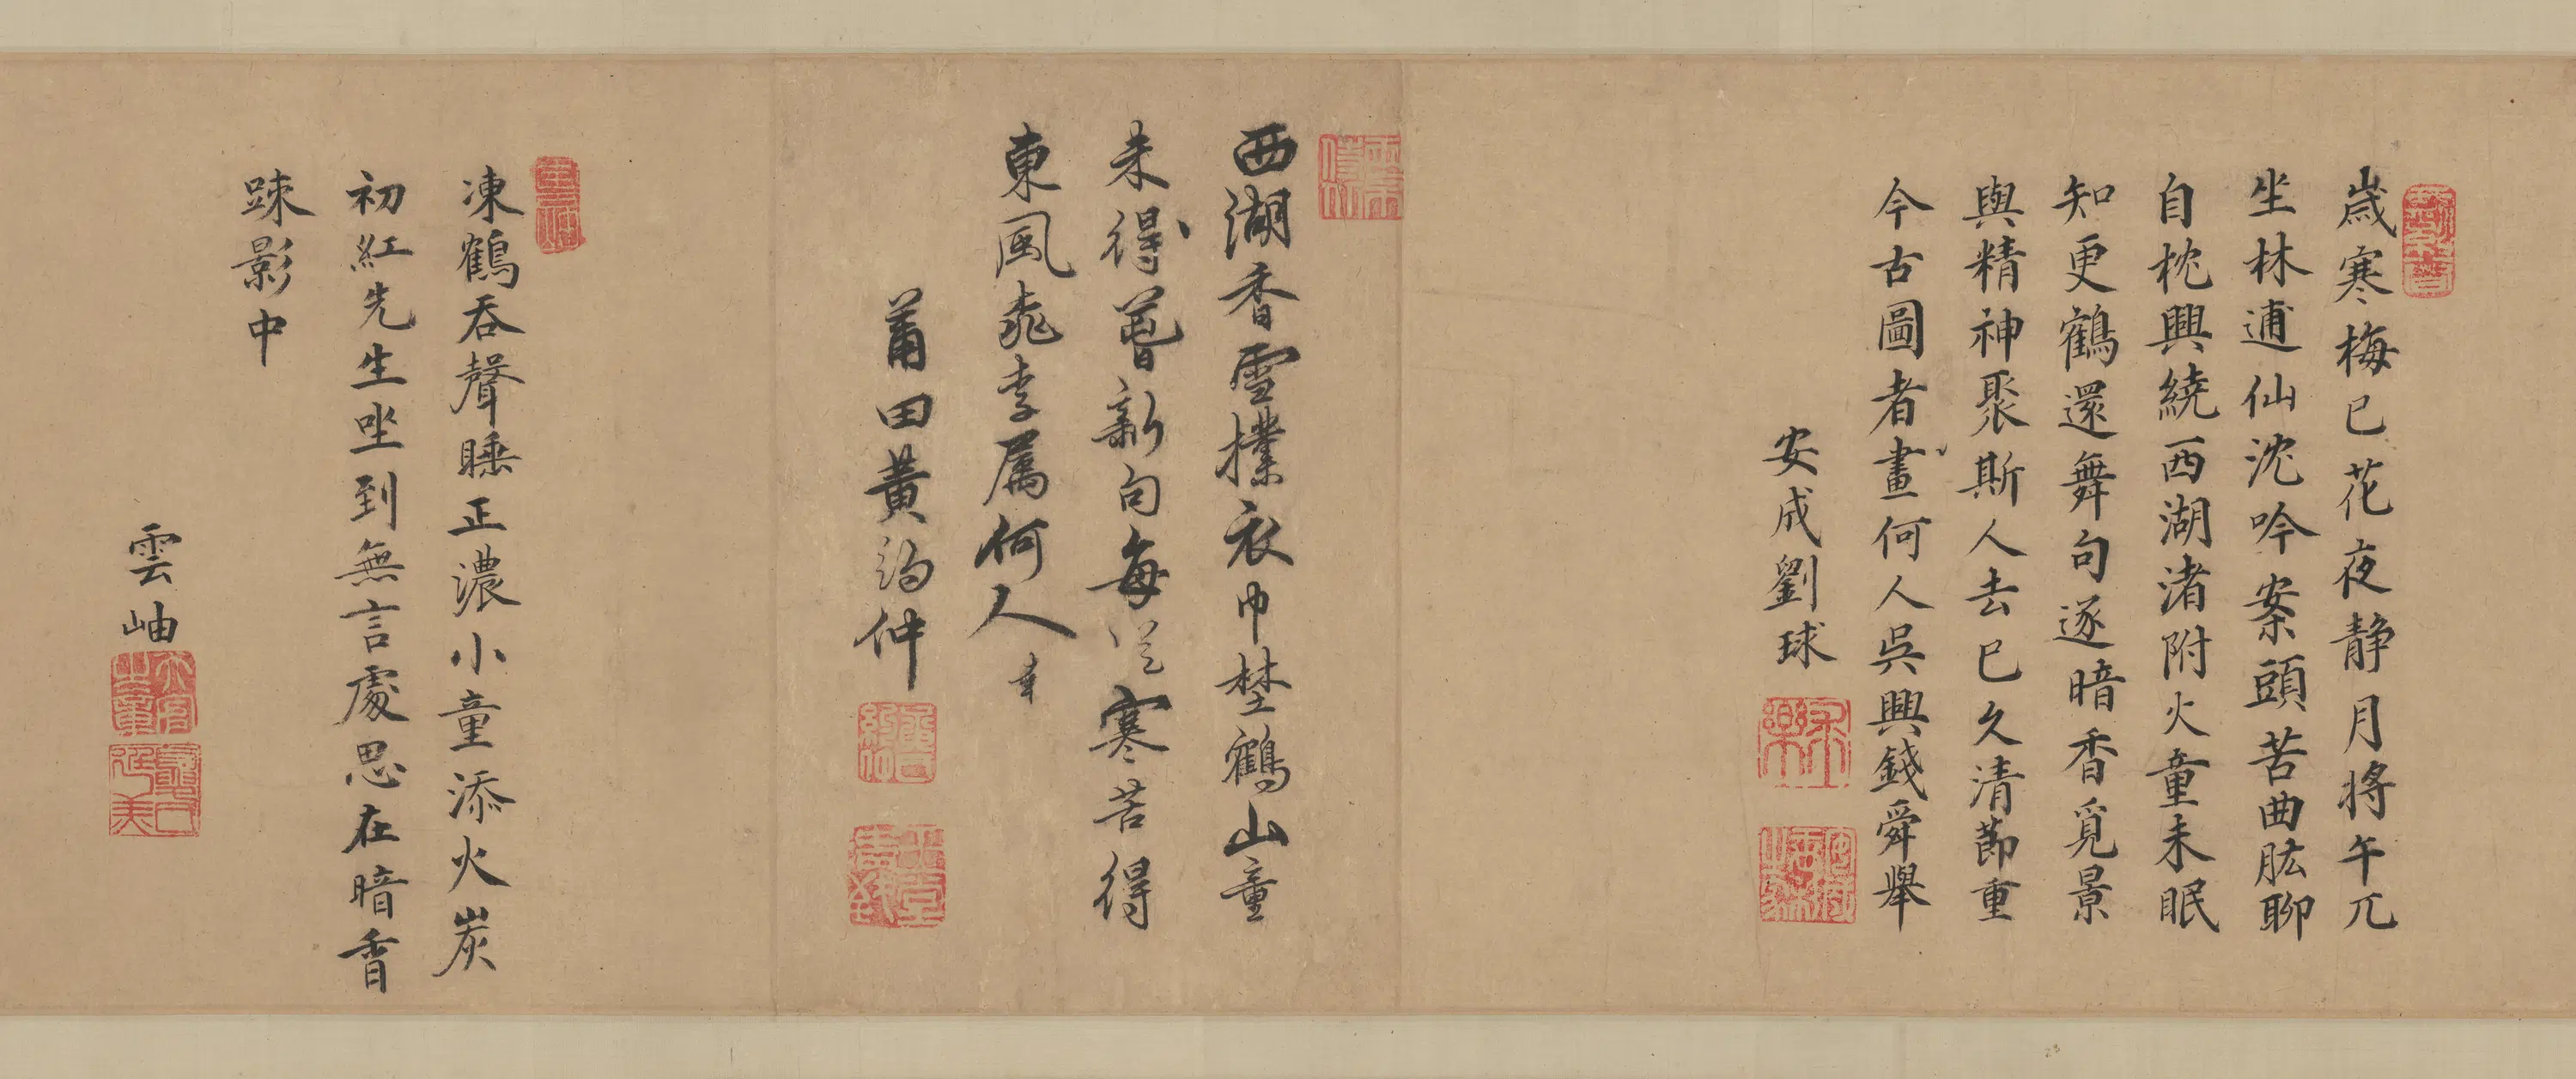 歲寒梅已花夜静月將午兀
坐林逋仙沈吟案頭苦曲肱聊
自枕興繞西湖渚附火童未眠
知更鶴還舞句逐暗香覓景
與精神聚斯人去已久清節重
今古圖者畫何人吳興錢舜舉
安成劉球
西湖香雪撲衣巾埜鶴山童
未得著新句每從寒苦得
東風桃李屬何人
莆田黃約仲
凍鶴吞聲睡正濃小童添火炭
初紅先生坐到無言處思在暗香
踈影中
雲岫